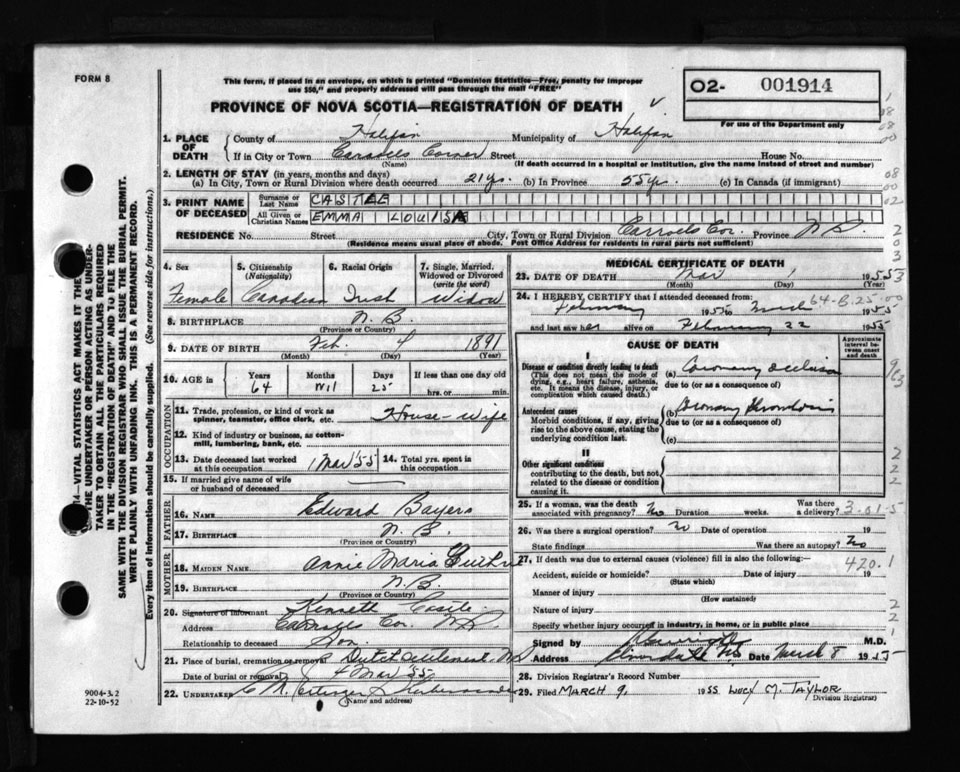 FORM 8
This form, if placed in an envelope, on which is printed "Dominion Statistics—Free, penalty for improper
use $50," and properly addressed will pass through the mail "FREE"
PROVINCE OF NOVA SCOTIA—REGISTRATION OF DEATH
O2- 001914
For use of the Department only
1. PLACE OF DEATH
County of Halifax Municipality of Halifax
If in City or Town Corner Street House No.
(Name) (If death occurred in a hospital or institution, give the name instead of street and number)
2. LENGTH OF STAY (in years, months and days)
(a) In City, Town or Rural Division where death occurred 21 yrs. (b) In Province 55 yr. (c) In Canada (if immigrant)
3. PRINT NAME OF DECEASED
Surname or Last Name CASTEE
All Given or Christian Names EMMA LOUISA
RESIDENCE No. Street City, Town or Rural Division Cor. Province N.S.
(Residence means usual place of abode. Post Office Address for residents in rural parts not sufficient)
4. Sex Female
5. Citizenship (Nationality) Canadian
6. Racial Origin Irish
7. Single, Married, Widowed or Divorced (write the word) Widow
8. BIRTHPLACE N.B.
(Province or Country)
9. DATE OF BIRTH Feb. 4 1891
(Month) (Day) (Year)
10. AGE in Years 64 Months Nil Days 25 If less than one day old
hrs. or min.
OCCUPATION
11. Trade, profession, or kind of work as spinner, teamster, office clerk, etc. House-wife
12. Kind of industry or business, as cotton-mill, lumbering, bank, etc.
13. Date deceased last worked at this occupation 1 Mar '55
14. Total yrs. spent in this occupation
15. If married give name of wife or husband of deceased
FATHER
16. NAME Edward Bayers
17. BIRTHPLACE N.B.
(Province or Country)
MOTHER
18. MAIDEN NAME Annie Maria
19. BIRTHPLACE N.B.
(Province or Country)
20. Signature of informant Kenneth
Address Cor. N.S.
Relationship to deceased Son.
21. Place of burial, cremation or removal Dutch Settlement, N.S.
Date of burial or removal 4 Mar '55
22. UNDERTAKER
(Name and address)
MEDICAL CERTIFICATE OF DEATH
23. DATE OF DEATH Mar 1 1955
(Month) (Day) (Year)
24. I HEREBY CERTIFY that I attended deceased from
February 1955 to 1955
and last saw her alive on February 22 1955
CAUSE OF DEATH
Approximate interval between onset and death
I
Disease or condition directly leading to death
(This does not mean the mode of dying, e.g., heart failure, asthenia, etc. It means the disease, injury, or complication which caused death.
(a) Coronary occlusion
due to (or as a consequence of)
Antecedent causes
Morbid conditions, if any, giving rise to the above cause, stating the underlying condition last.
(b) Coronary Thrombosis
due to (or as a consequence of)
(c)
II
Other significant conditions
contributing to the death, but not related to the disease or condition causing it.
25. If a woman, was the death associated with pregnancy? No Duration weeks. Was there a delivery?
26. Was there a surgical operation? no Date of operation 19
State findings Was there an autopsy? No
27. If death was due to external causes (violence) fill in also the following:—
Accident, suicide or homicide? Date of injury 19
(State which)
Manner of injury
(How sustained)
Nature of injury
Specify whether injury occurred in industry, in home, or in public place
Signed by M.D.
Address N.S. Date March 8 1955
28. Division Registrar's Record Number
29. Filed MARCH 9, 1955 LUCY M. TAYLOR
Division Registrar)
64-8-25-00
3-01-5
420.1
14—VITAL STATISTICS ACT MAKES IT THE
THE UNDERTAKER OR PERSON ACTING AS UNDER-
TAKER TO OBTAIN ALL THE PARTICULARS REQUIRED
IN THE "REGISTRATION OF DEATH" AND TO FILE THE
SAME WITH THE DIVISION REGISTRAR WHO SHALL ISSUE THE BURIAL PERMIT.
WRITE PLAINLY WITH UNFADING INK. THIS IS A PERMANENT RECORD.
Every item of information should be carefully supplied. (See reverse side for instructions.)
9004-3.2
22-10-52